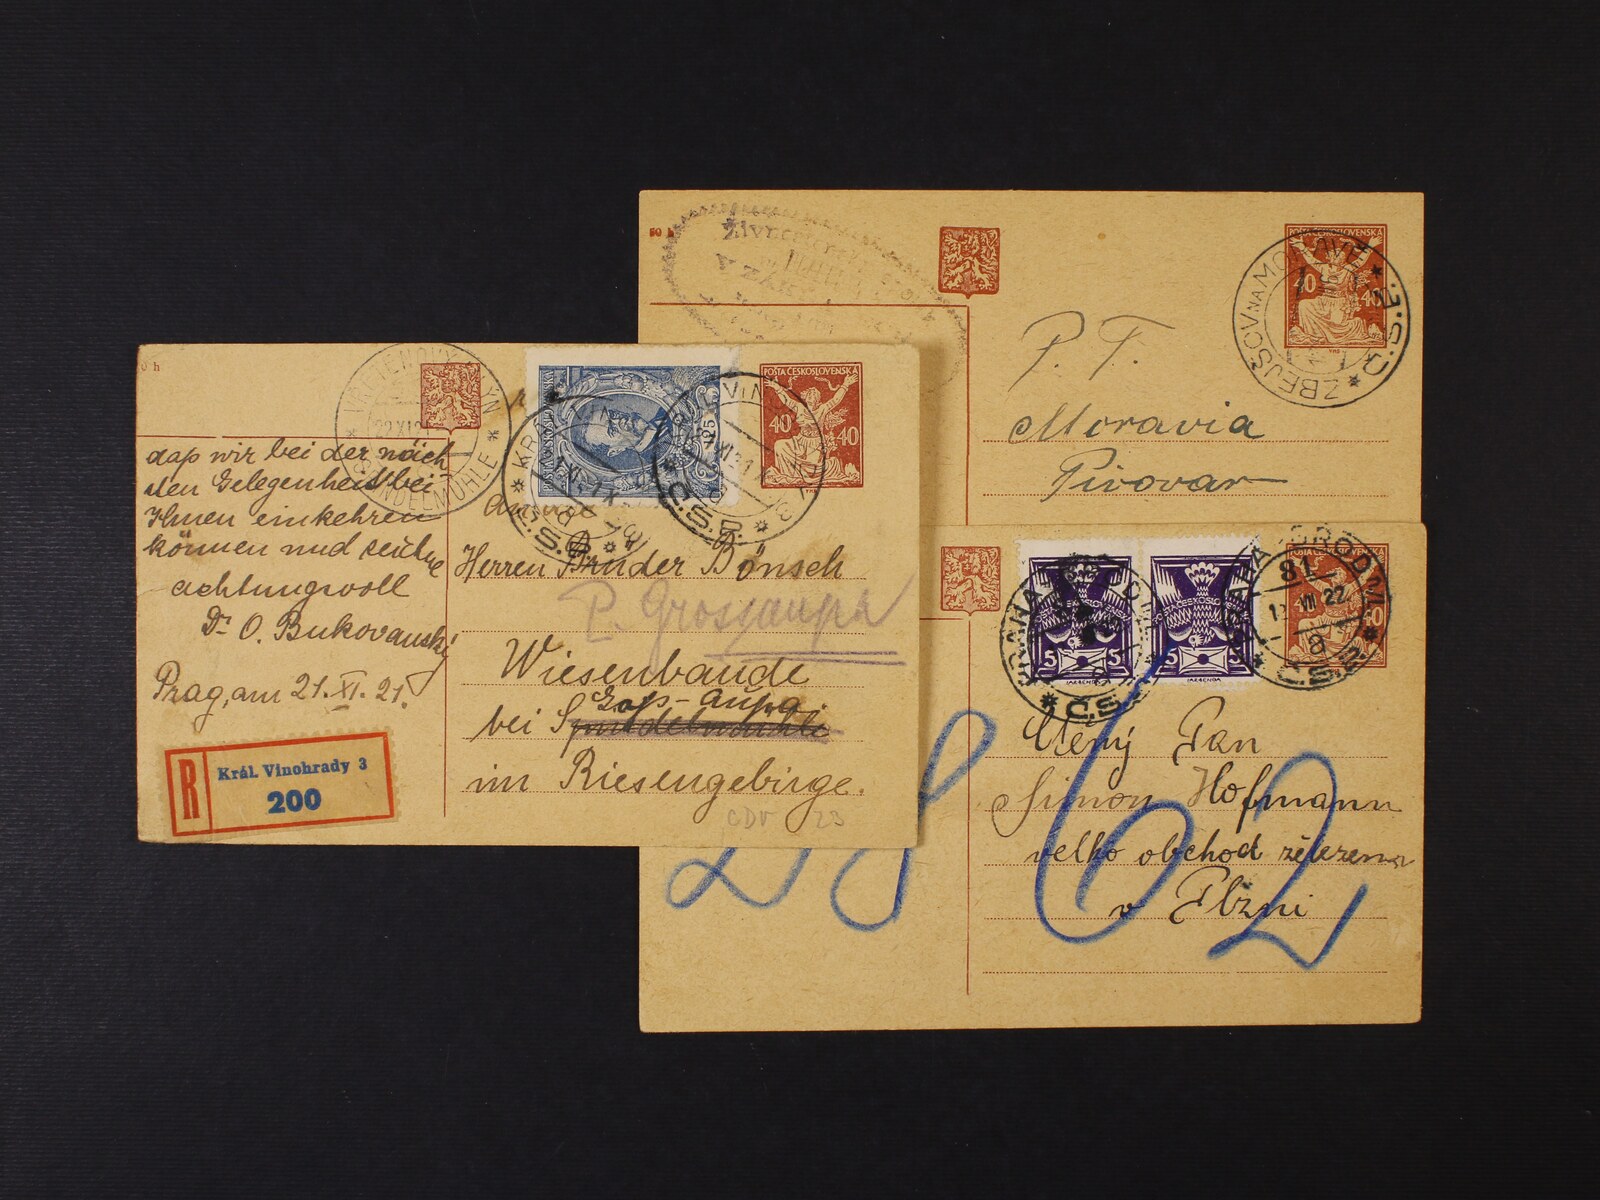 dap wir bei der näch
sten Gelegenheit bei
Ihnen einkehren
können und zeichne
achtungsvoll
Dr O. Bukovanský
Prag, am 21. XI. 21.
R Král. Vinohrady 3
200
POŠTA ČESKOSLOVENSKÁ
125
POŠTA ČESKOSLOVENSKÁ
40 40
Herren Bruder Bönsch
P. Grossaupa
Wiesenbaude
Groß-Aupa
bei Spindelmühle
im Riesengebirge.
CDV 23
50 h
POŠTA ČESKOSLOVENSKÁ
40 40
ZBEJŠOV NA MORAVĚ
Č.S.P.
P. T.
Moravia
Pivovar
5 5
POŠTA ČESKOSLOVENSKÁ
81
VII 22
Č.S.P.
Ctěný Pan
Simon Hofmann
velko obchod železem
v Plzni
28 62